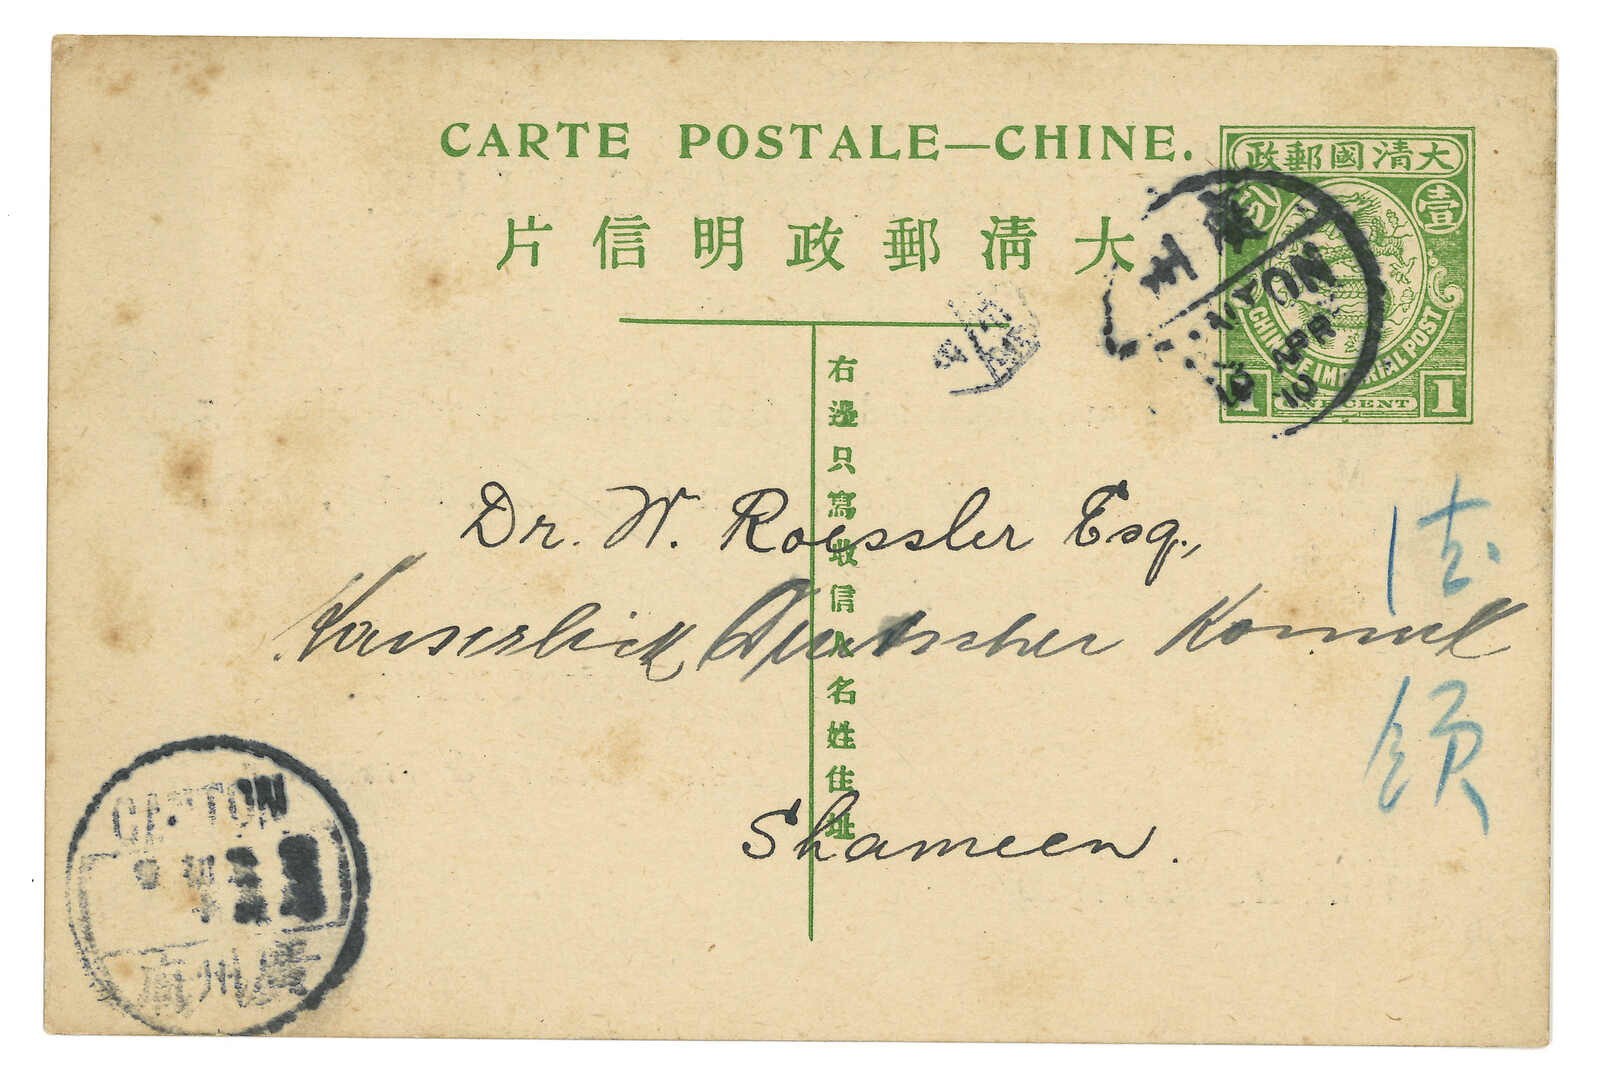 CARTE POSTALE—CHINE.
大清郵政明信片
大清國郵政
壹
分
CHINESE IMPERIAL POST
1 ONE CENT 1
CANTON
APR
10
右邊只寫收信人名姓住址
Dr. W. Roessler Esq.,
Kaiserlich Deutscher Konsul
Shameen.
法
領
CANTON
廣州府